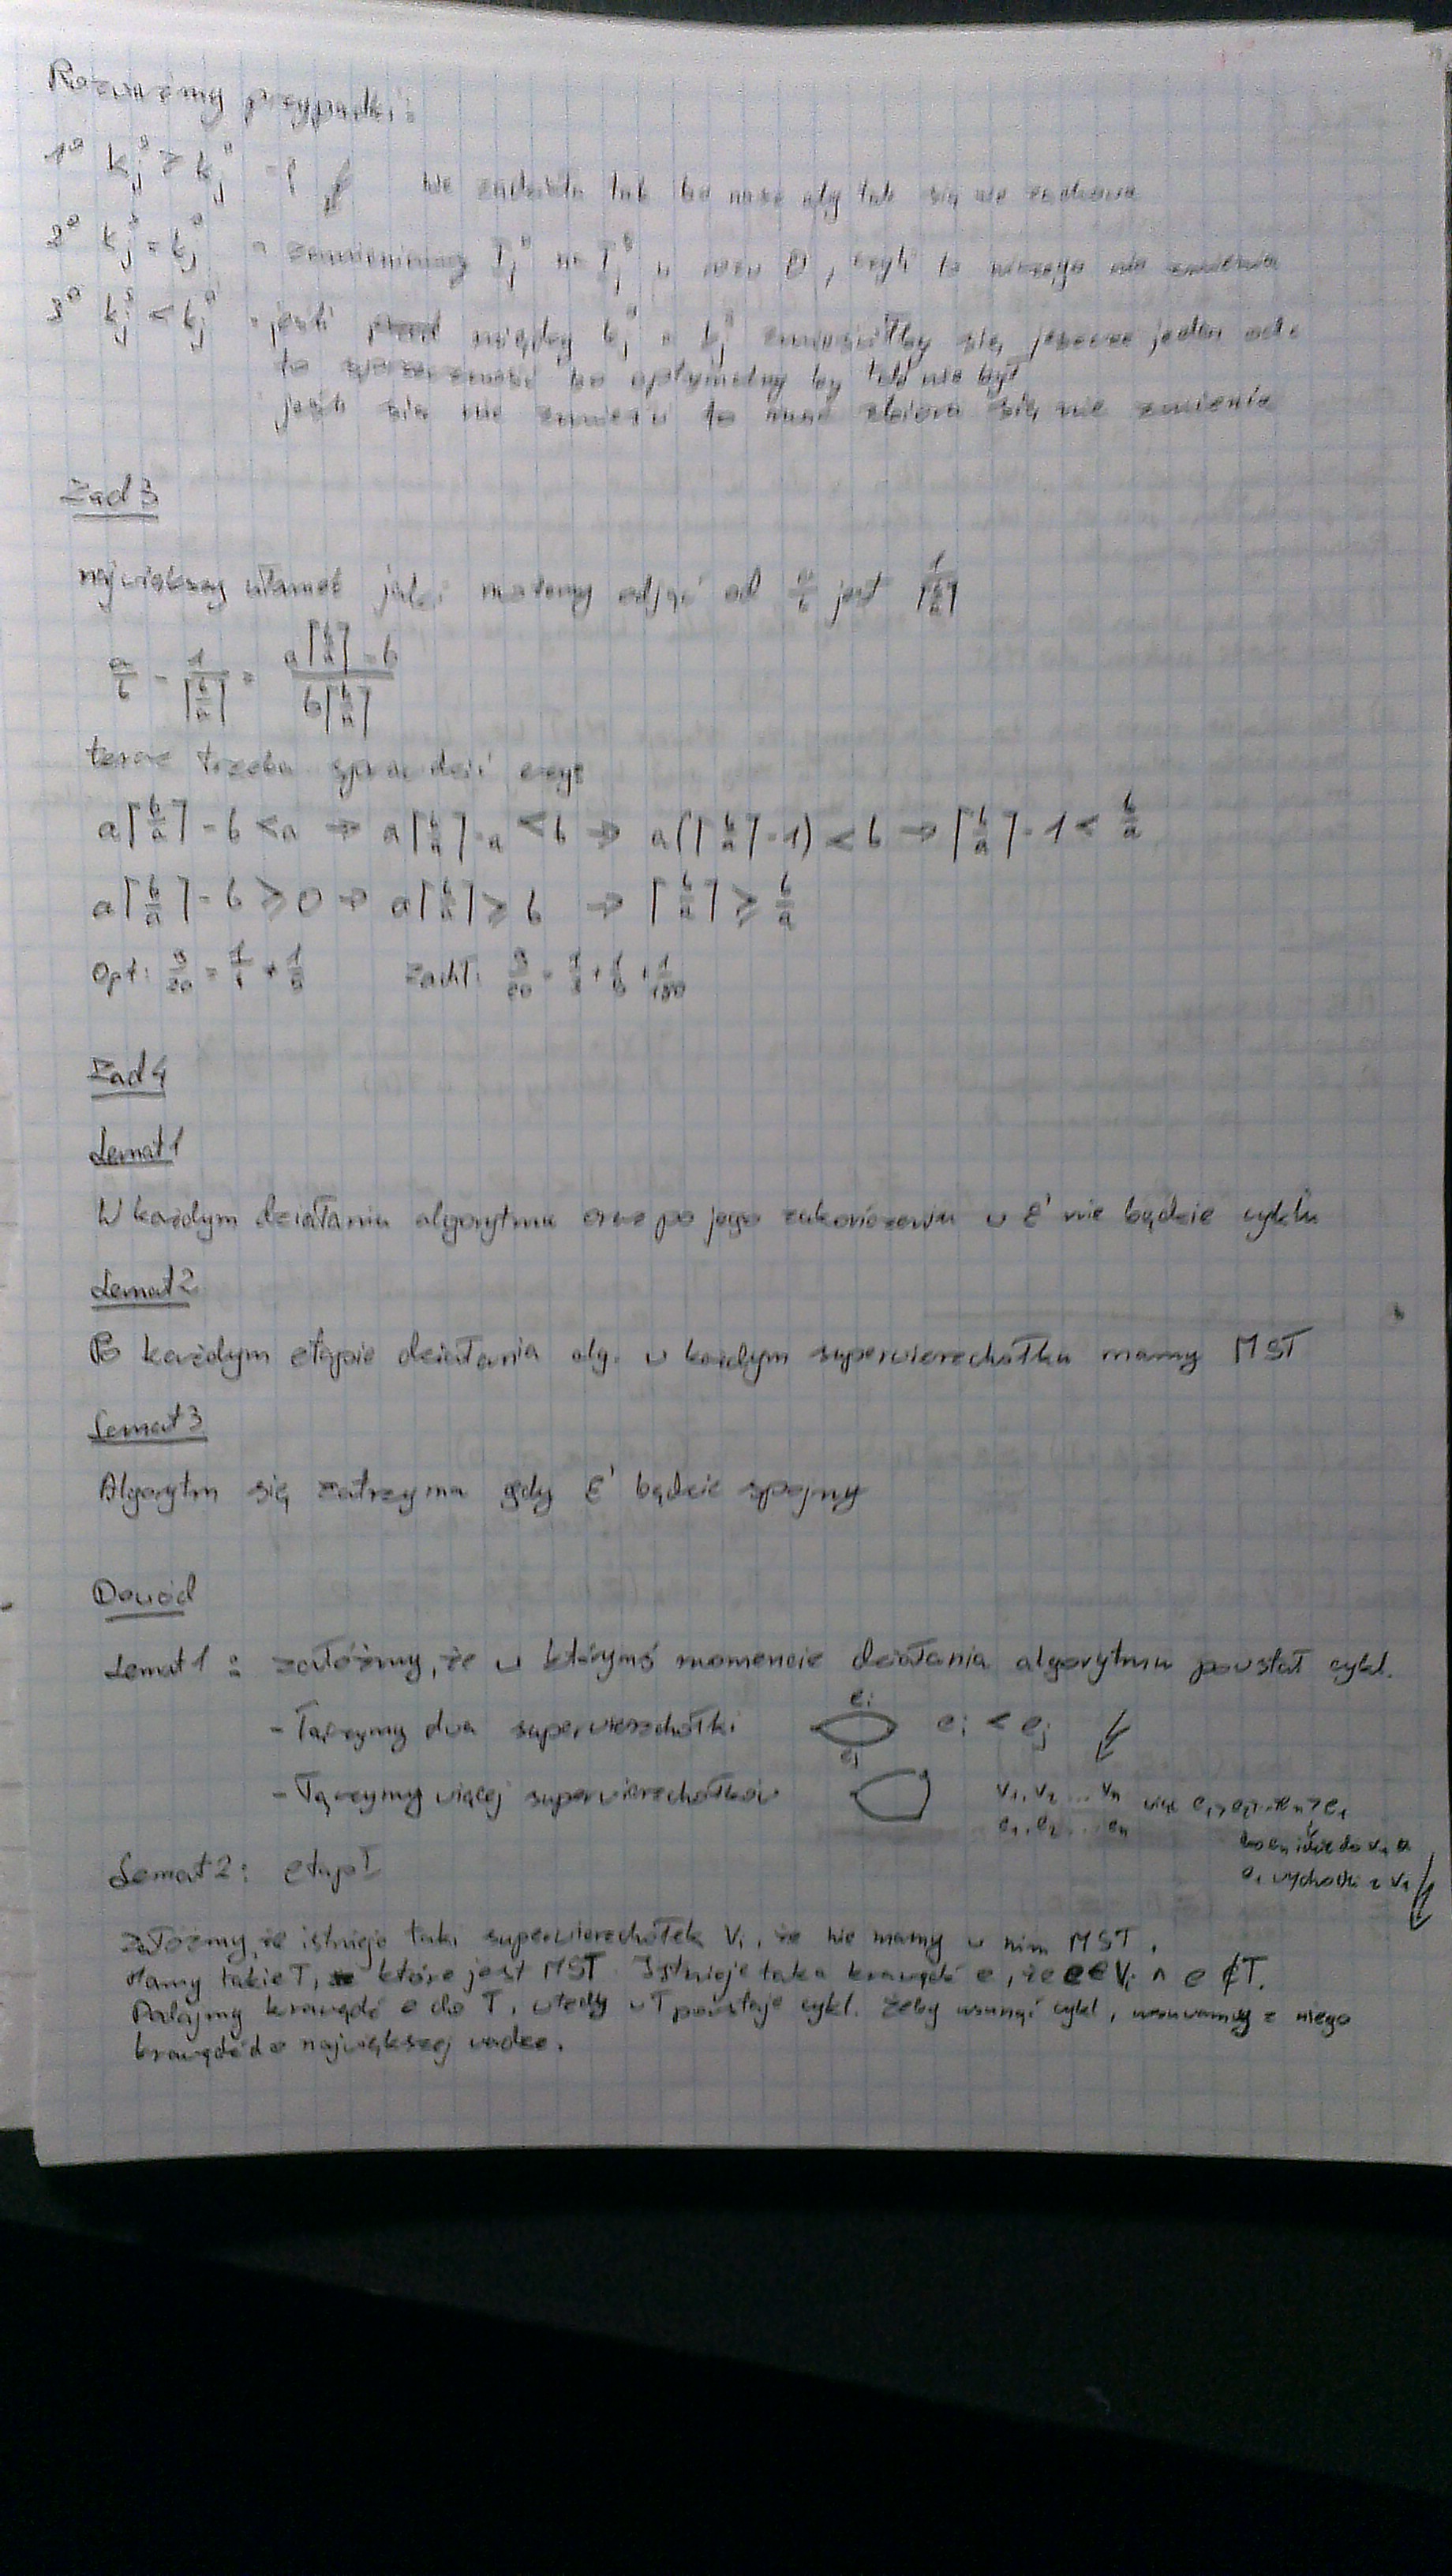 Rozważmy przypadki:
1° k_j^s > k_j^o
2° k_j^s = k_j^o - zamieniamy T_j^o na T_j^s , czyli to niczego nie zmienia
3° k_j^s < k_j^o - jeśli między k_j^s a k_j^o zmieściłby się jeszcze jeden
to sprzeczność bo optymalny by taki nie był
jeśli się nie zmieści to zbioru się nie zmienia
Zad 3
największy ułamek jaki możemy odjąć od a/b jest 1/⌈b/a⌉
a/b - 1/⌈b/a⌉ = (a⌈b/a⌉ - b)/(b⌈b/a⌉)
teraz trzeba sprawdzić czy:
a⌈b/a⌉ - b < a → a⌈b/a⌉ - a < b → a(⌈b/a⌉ - 1) < b → ⌈b/a⌉ - 1 < b/a
a⌈b/a⌉ - b ≥ 0 → a⌈b/a⌉ ≥ b → ⌈b/a⌉ ≥ b/a
Opt: 9/20 = zachł: 9/20 =
Zad 4
Lemat 1
W każdym działaniu algorytmu oraz po jego zakończeniu w E' nie będzie cyklu
Lemat 2
Po każdym etapie działania alg. w każdym superwierzchołku mamy MST
Lemat 3
Algorytm się zatrzyma gdy E' będzie spójny
Dowód
Lemat 1: załóżmy, że w którymś momencie działania algorytmu powstał cykl.
- łączymy dwa superwierzchołki e_i e_j e_i < e_j
- łączymy więcej superwierzchołków v_1, v_2 ... v_n więc
e_1, e_2 ... e_n
bo e_n idzie do v_1 a
e_1 wychodzi z v_1
Lemat 2: etap I
Załóżmy, że istnieje taki superwierzchołek V_i, że nie mamy w nim MST.
Mamy takie T, które jest MST. Istnieje taka krawędź e, że e ∈ V_i ∧ e ∉ T.
Dodajmy krawędź e do T, wtedy w T powstaje cykl. Żeby usunąć cykl, usuwamy z niego
krawędź o największej wadze.